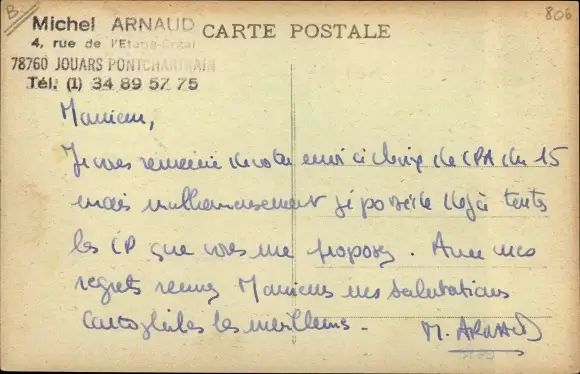 B.
806
Michel ARNAUD
CARTE POSTALE
4, rue de l'Etang-Créal
78760 JOUARS PONTCHARTRAIN
Tél. (1) 34 89 57 75
Monsieur,
Je vous remercie de votre envoi à choix de CPA du 15
mais malheureusement je possède déjà toutes
les CP que vous me proposez. Avec mes
regrets recevez Monsieur mes salutations
cartophiles les meilleures.
M. ARNAUD